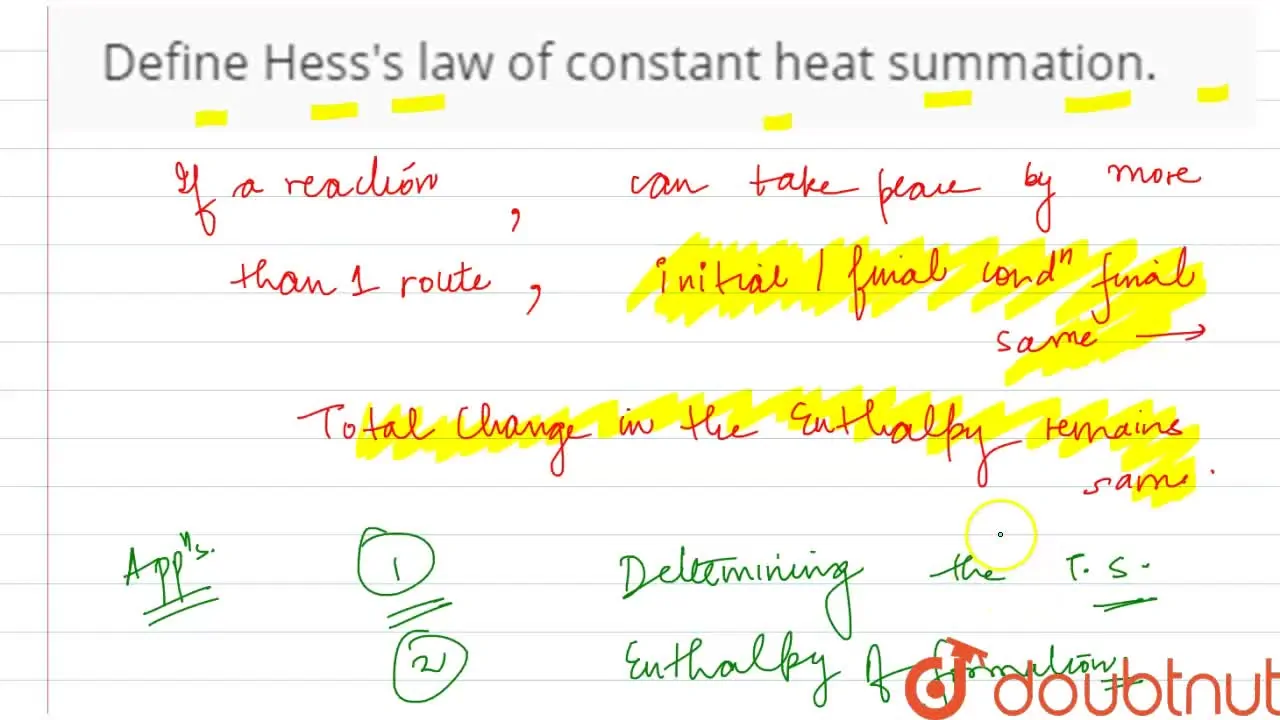 Define Hess's law of constant heat summation.
If a reaction, can take place by more
than 1 route, initial / final condⁿ final
same →
Total Change in the Enthalpy remains
same.
Appⁿs. 1 Determining the T. S.
2 Enthalpy of formation
doubtnut